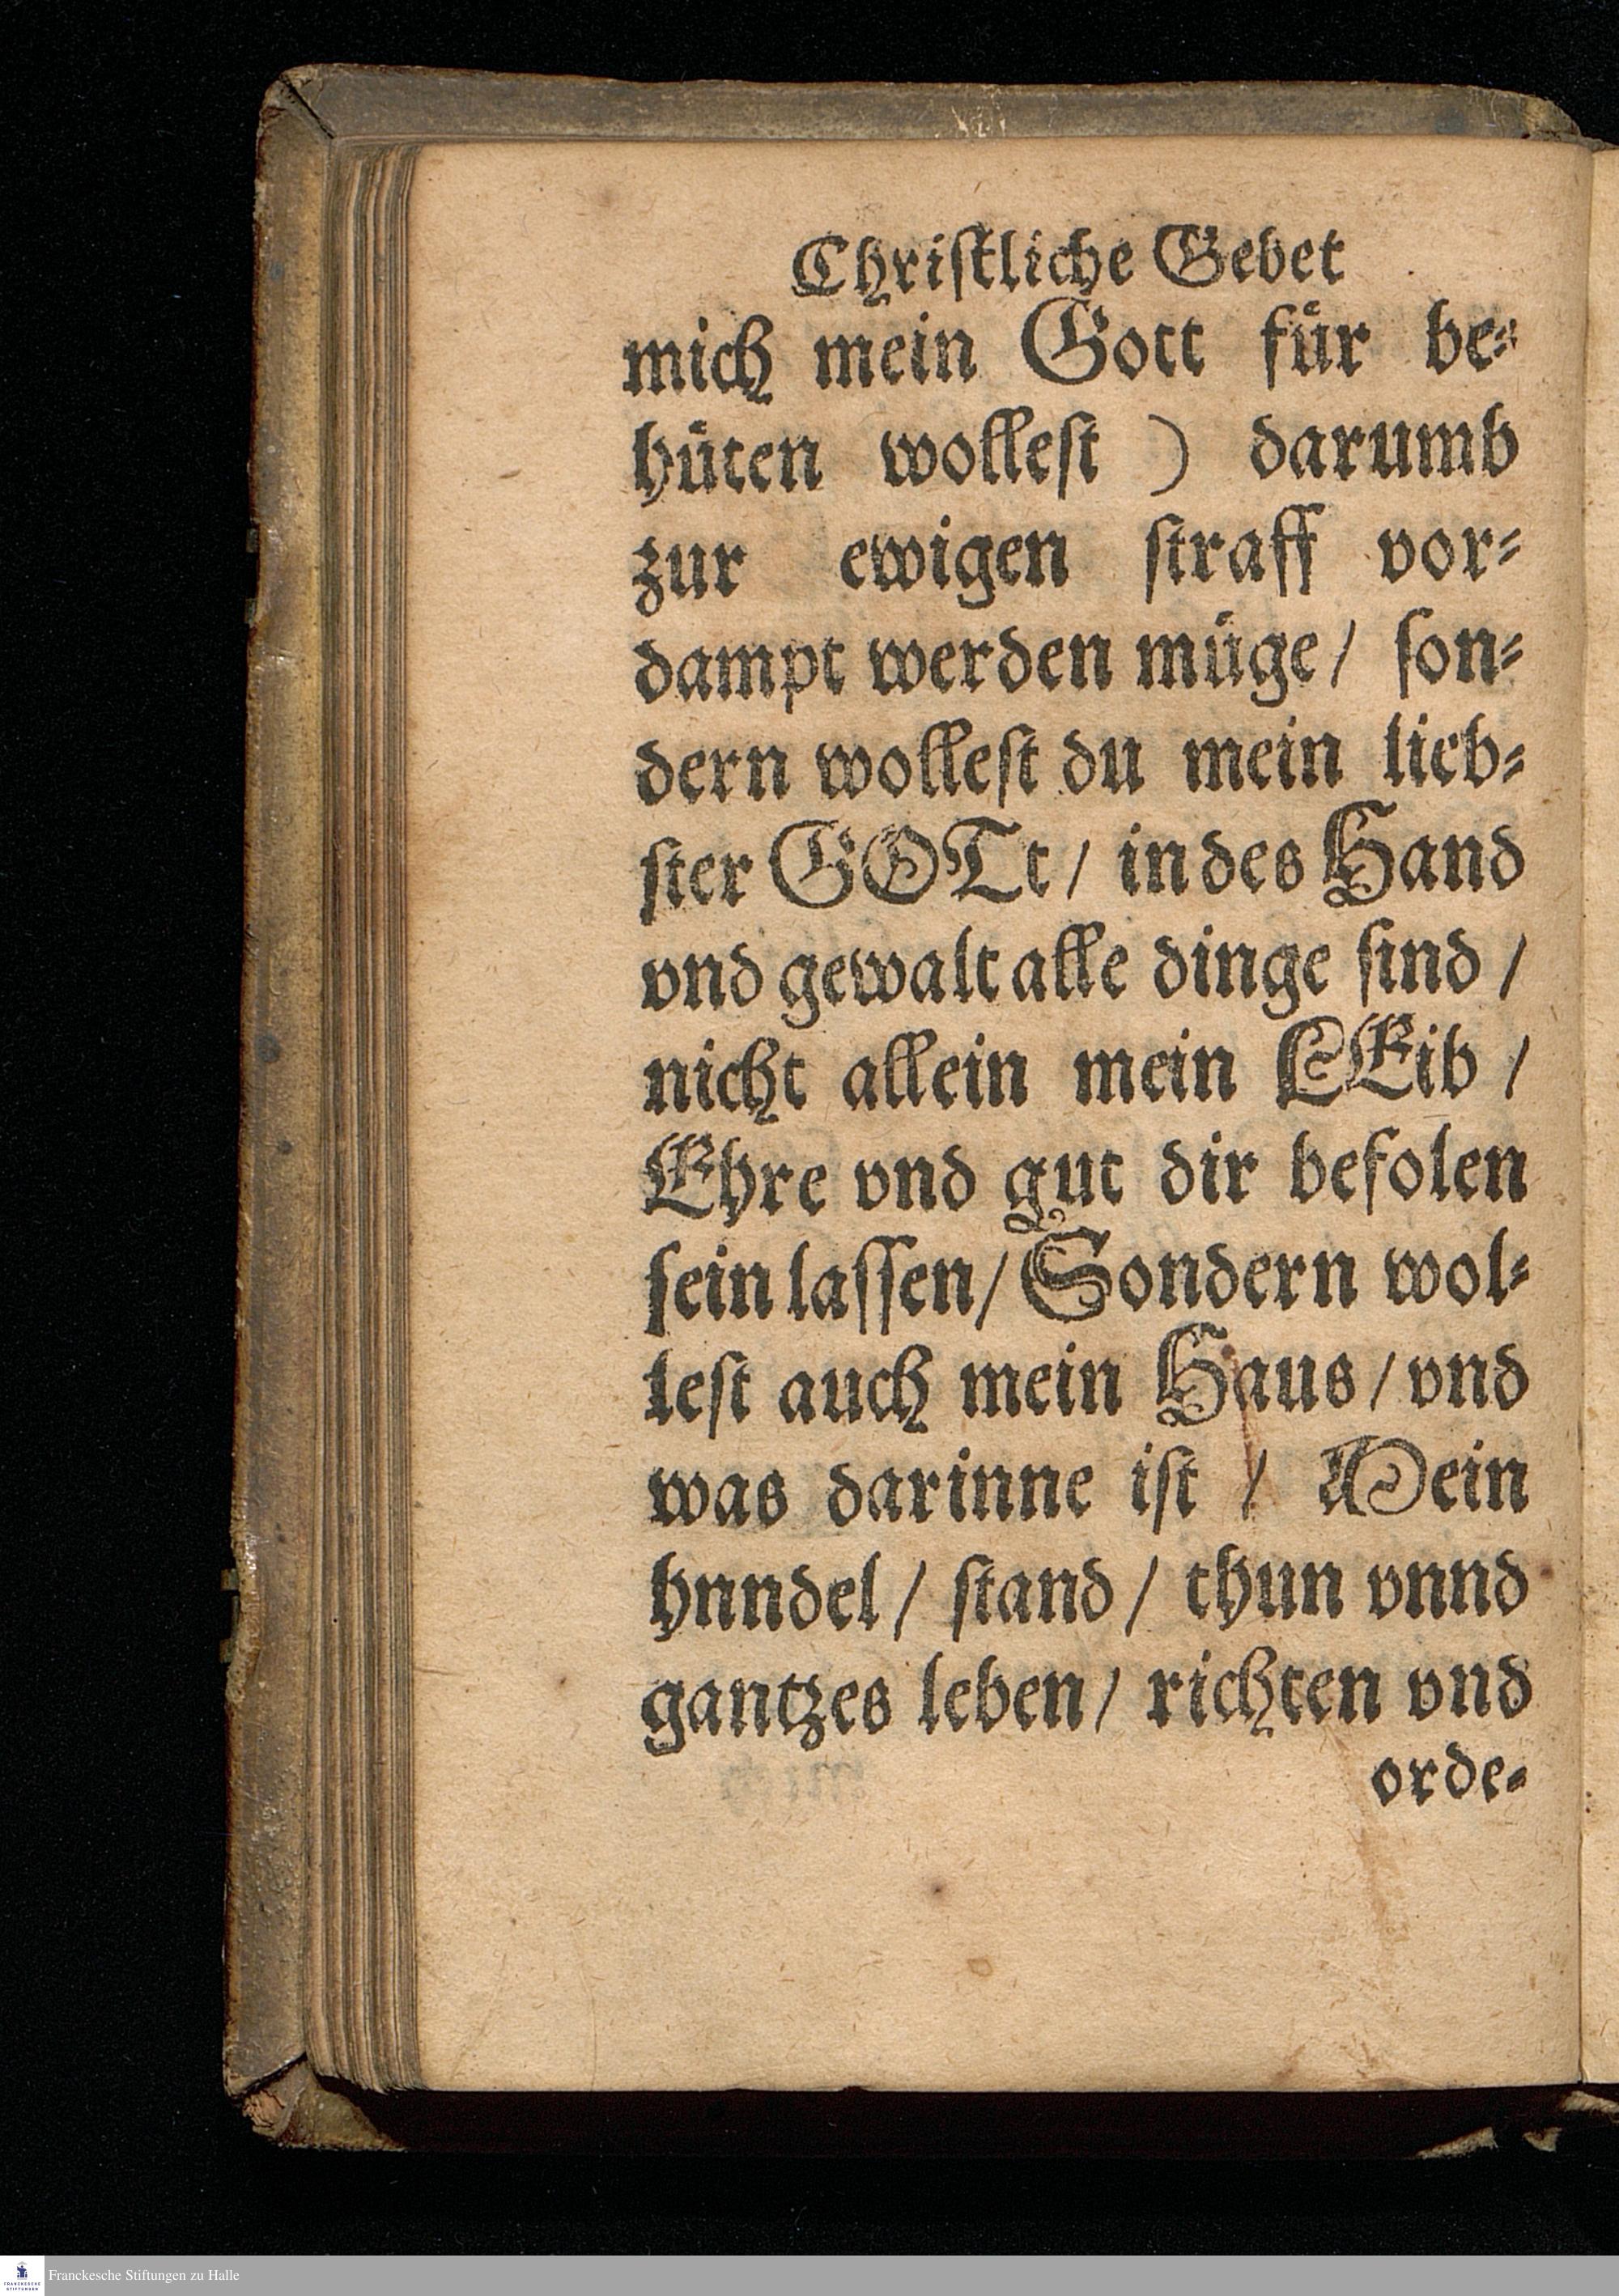 Chriſtliche Gebet
mich mein Gott fuͤr be⸗
huͤten wolleſt ) darumb
zur ewigen ſtraff vor⸗
dampt werden muͤge / ſon⸗
dern wolleſt du mein lieb⸗
ſter GOTt / in des Hand
vnd gewalt alle dinge ſind /
nicht allein mein LEib /
Ehre vnd gut dir befolen
ſein laſſen / Sondern wol⸗
leſt auch mein Haus / vnd
was darinne iſt / Mein
hnndel / ſtand / thun vnnd
gantzes leben / richten vnd
orde⸗
FRANCKESCHE STIFTUNGEN
Franckesche Stiftungen zu Halle